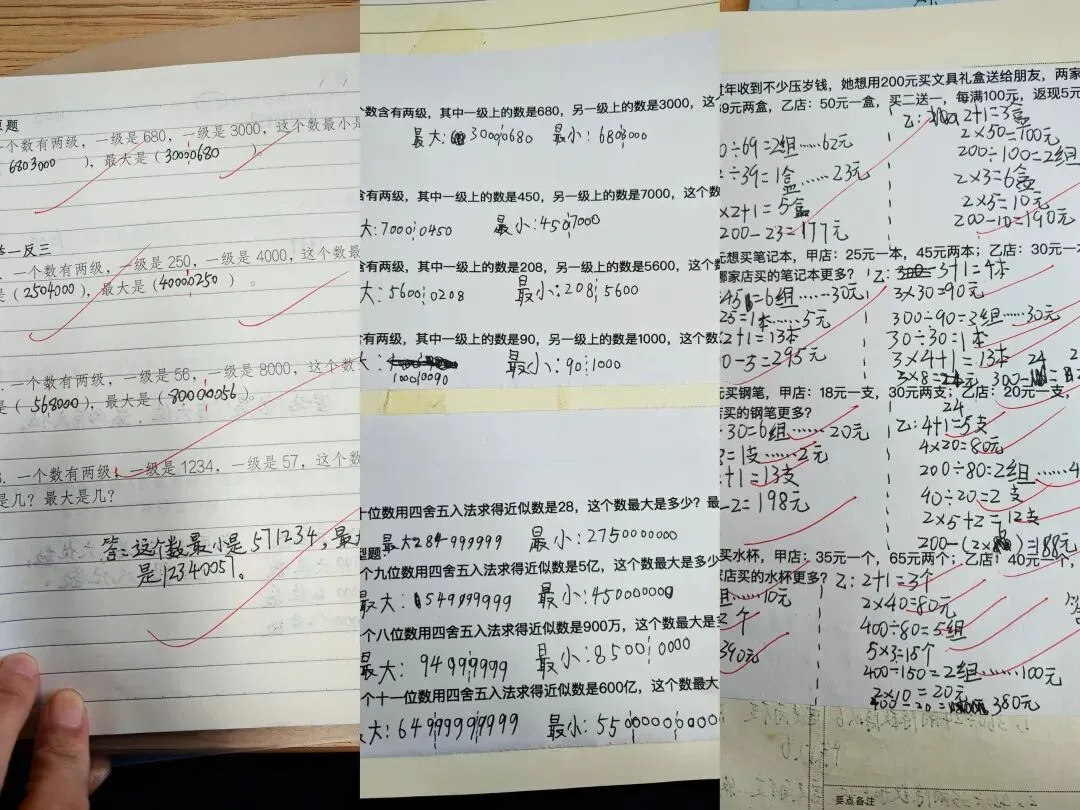 原题
一个数有两级，一级是680，一级是3000，这个数最小是
6803000 ），最大是（30000680 ）。
举一反三
一个数有两级，一级是250，一级是4000，这个数最
是（2504000），最大是（40000250 ）。
一个数有两级，一级是56，一级是8000，这个数
是（568000），最大是（80000056）。
3. 一个数有两级，一级是1234，一级是57，这个数
是几？最大是几？
答：这个数最小是571234，最大
是12340057。
个数含有两级，其中一级上的数是680，另一级上的数是3000，这
最大：30000680 最小：6803000
含有两级，其中一级上的数是450，另一级上的数是7000，这个数
大：70000450 最小：4507000
含有两级，其中一级上的数是208，另一级上的数是5600，这个数
大：56000208 最小：2085600
有两级，其中一级上的数是90，另一级上的数是1000，这个数
最小：901000
10000090
十位数用四舍五入法求得近似数是28，这个数最大是多少？最
最大284999999 最小：2750000000
型题：
个九位数用四舍五入法求得近似数是5亿，这个数最大是多少
最大：549999999 最小：450000000
个八位数用四舍五入法求得近似数是900万，这个数最大是
最大：94999999 最小：85000000
个十一位数用四舍五入法求得近似数是600亿，这个数最大
大：64999999999 最小：55000000000
过年收到不少压岁钱，她想用200元买文具礼盒送给朋友，两家
69元两盒，乙店：50元一盒，买二送一，每满100元，返现5元
乙：2+1=3盒
0÷69=2组……62元
2×50=100元
200÷100=2组
÷39=1盒……23元
2×3=6盒
×2+1=5盒
2×5=10元
200-23=177元
200-10=190元
元想买笔记本，甲店：25元一本，45元两本；乙店：30元一
哪家店买的笔记本更多？ 乙：3+1=4本
45=6组……30元
3×30=90元
25=1本……5元
300÷90=3组……30元
2+1=13本
30÷30=1本
0-5=295元
3×4+1=13本
3×8=24元
元买钢笔，甲店：18元一支，30元两支；乙店：20元一支，
店买的钢笔更多？
24
乙：4+1=5支
30=6组……20元
4×20=80元
=1支……2元
200÷80=2组……4
+1=13支
40÷20=2支
-2=198元
2×5+2=12支
买水杯，甲店：35元一个，65元两个；乙店：40元一个，
店买的水杯更多？ 乙：2+1=3个
组……10元
2×40=80元
400÷80=5组
390元
5×3=15个
400÷150=2组……100元
2×10=20元
400-20=380元
要点备注